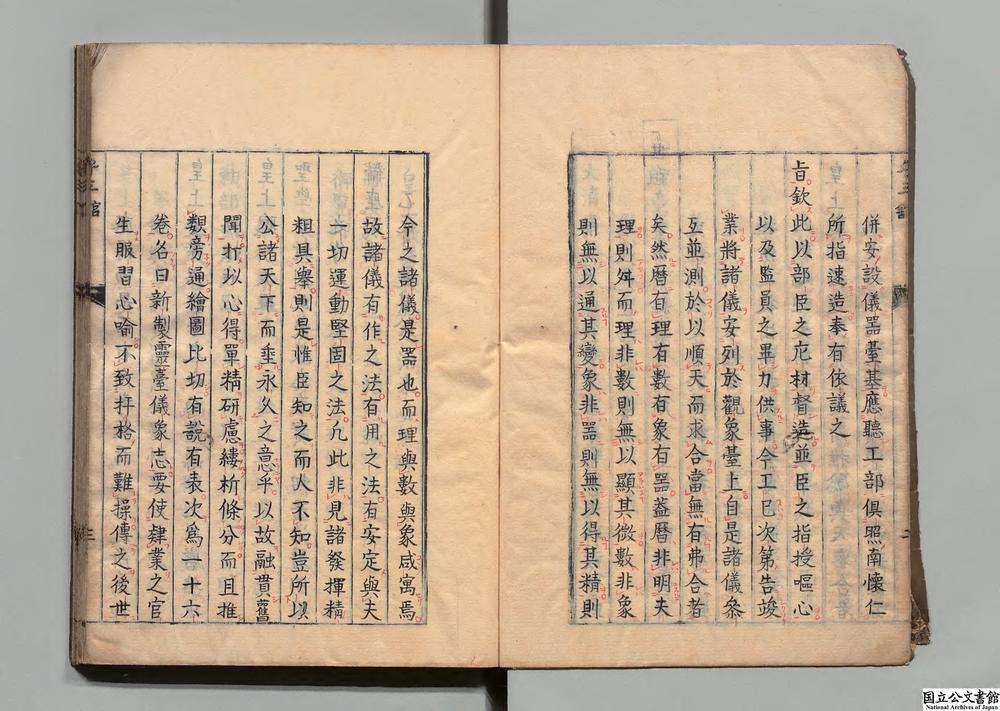 併安設儀器臺基應聽工部俱照南懷仁
所指速造奉有依議之
旨欽此以部臣之庀材督造並臣之指授嘔心
以及監員之畢力供事今工已次第告竣
業將諸儀安列於觀象臺上自是諸儀叅
互並測於以順天而求合當無有弗合者
矣然曆有理有數有象有器蓋曆非明夫
理則舛而理非數則無以顯其微數非象
則無以通其變象非器則無以得其精則
今之諸儀是器也而理與數與象咸寓焉
故諸儀有作之法有用之法有安定與夫
一切運動堅固之法凡此非見諸發揮精
粗具舉則是惟臣知之而人不知豈所以
公諸天下而垂永久之意乎以故融貫舊
聞抒以心得單精研慮縷析條分而且推
類旁通繪圖比切有說有表次為一十六
卷名曰新製靈臺儀象志要使肄業之官
生服習心喻不致扞格而難操傳之後世
国立公文書館
National Archives of Japan